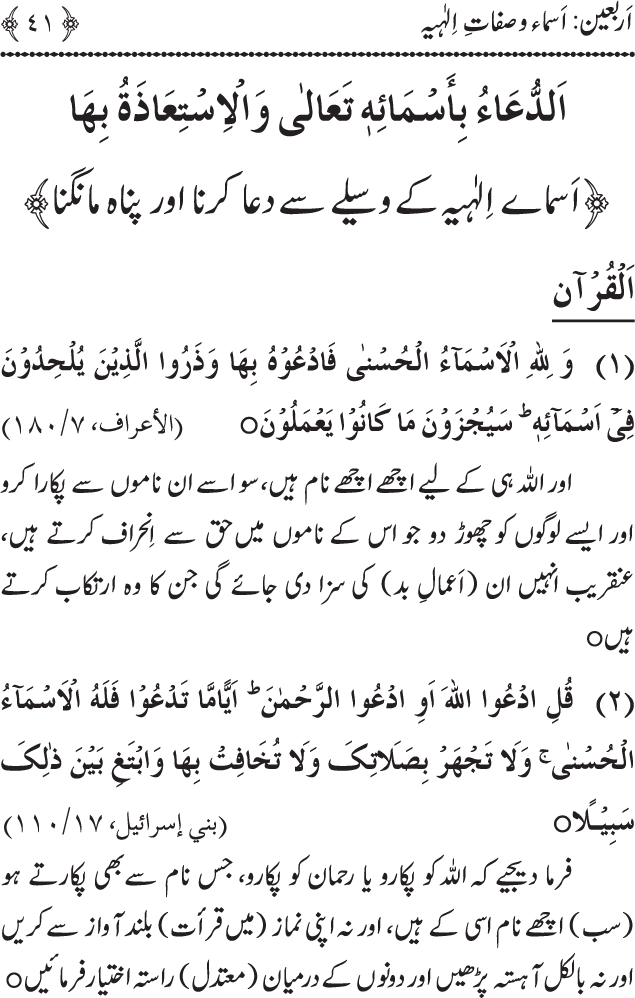 اَربعین: اَسماء و صفاتِ اِلٰہیہ ﴿٤١﴾
اَلدُّعَاءُ بِأَسْمَائِهٖ تَعَالٰى وَالْاِسْتِعَاذَةُ بِهَا
﴿اَسماے اِلٰہیہ کے وسیلے سے دعا کرنا اور پناہ مانگنا﴾
اَلْقُرْآن
(١) وَ ِللهِ الْاَسْمَآءُ الْحُسْنٰى فَادْعُوْهُ بِهَا وَذَرُوا الَّذِيْنَ يُلْحِدُوْنَ
فِيْٓ اَسْمَآئِهٖ ؕ سَيُجْزَوْنَ مَا كَانُوْا يَعْمَلُوْنَ○ (الأعراف، ٧/١٨٠)
اور اللہ ہی کے لیے اچھے اچھے نام ہیں، سو اسے ان ناموں سے پکارا کرو
اور ایسے لوگوں کو چھوڑ دو جو اس کے ناموں میں حق سے اِنحراف کرتے ہیں،
عنقریب انہیں ان (اَعمالِ بد) کی سزا دی جائے گی جن کا وہ ارتکاب کرتے
ہیں○
(٢) قُلِ ادْعُوا اللهَ اَوِ ادْعُوا الرَّحْمٰنَ ؕ اَيًّامَّا تَدْعُوْا فَلَهُ الْاَسْمَآءُ
الْحُسْنٰى ۚ وَلَا تَجْهَرْ بِصَلَاتِكَ وَلَا تُخَافِتْ بِهَا وَابْتَغِ بَيْنَ ذٰلِكَ
سَبِيْلًا○ (بني إسرائيل، ١٧/١١٠)
فرما دیجیے کہ اللہ کو پکارو یا رحمان کو پکارو، جس نام سے بھی پکارتے ہو
(سب) اچھے نام اسی کے ہیں، اور نہ اپنی نماز (میں قرأت) بلند آواز سے کریں
اور نہ بالکل آہستہ پڑھیں اور دونوں کے درمیان (معتدل) راستہ اختیار فرمائیں○